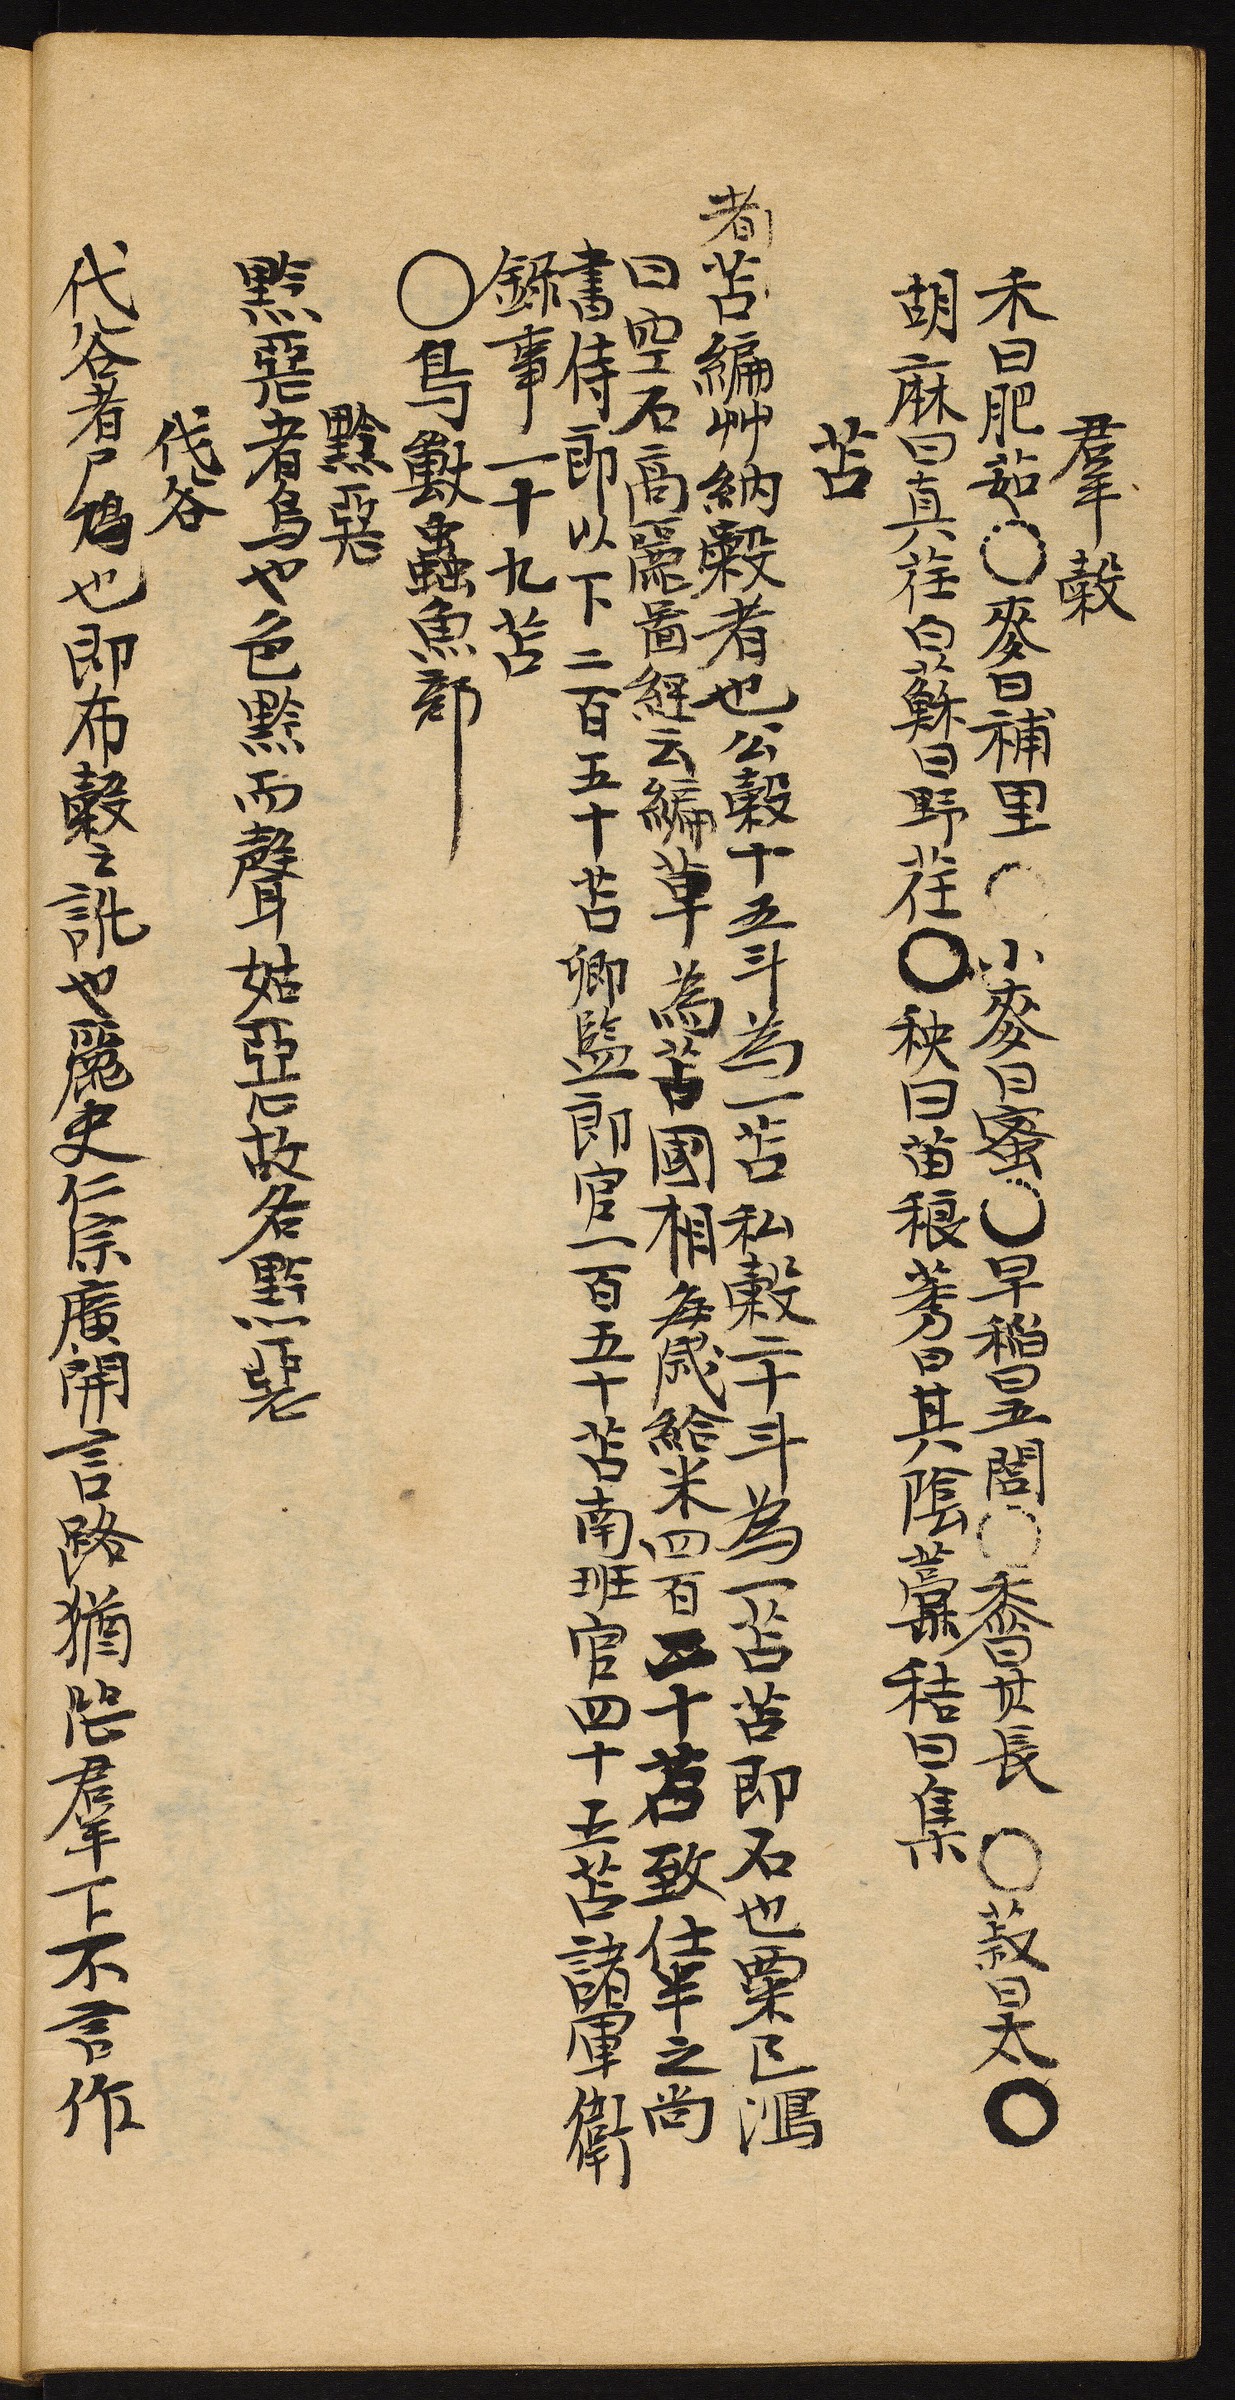 羣穀
禾曰肥茹○麥曰補里○小麥曰蜜○早稻曰五誾○黍曰其長○菽曰太○
胡麻曰真荏白蘇曰野荏○秧曰苗稂莠曰其陰藁秸曰集
苫
者苫編艸納穀者也公穀十五斗為一苫私穀二十斗為一苫苫即石也粟已漏
曰空石高麗啚経云編草為苫國相每歲給米四百二十苫致仕半之尚
書侍郎以下二百五十苫卿監郎官一百五十苫南班官四十五苫諸軍衛
錄事一十九苫
○鳥獸蟲魚部
黔惡
黔惡者烏也色黔而聲姑惡故名黔惡
伐谷
伐谷者尸鳩也即布穀之訛也麗史仁宗廣開言路猶恐羣下不言作